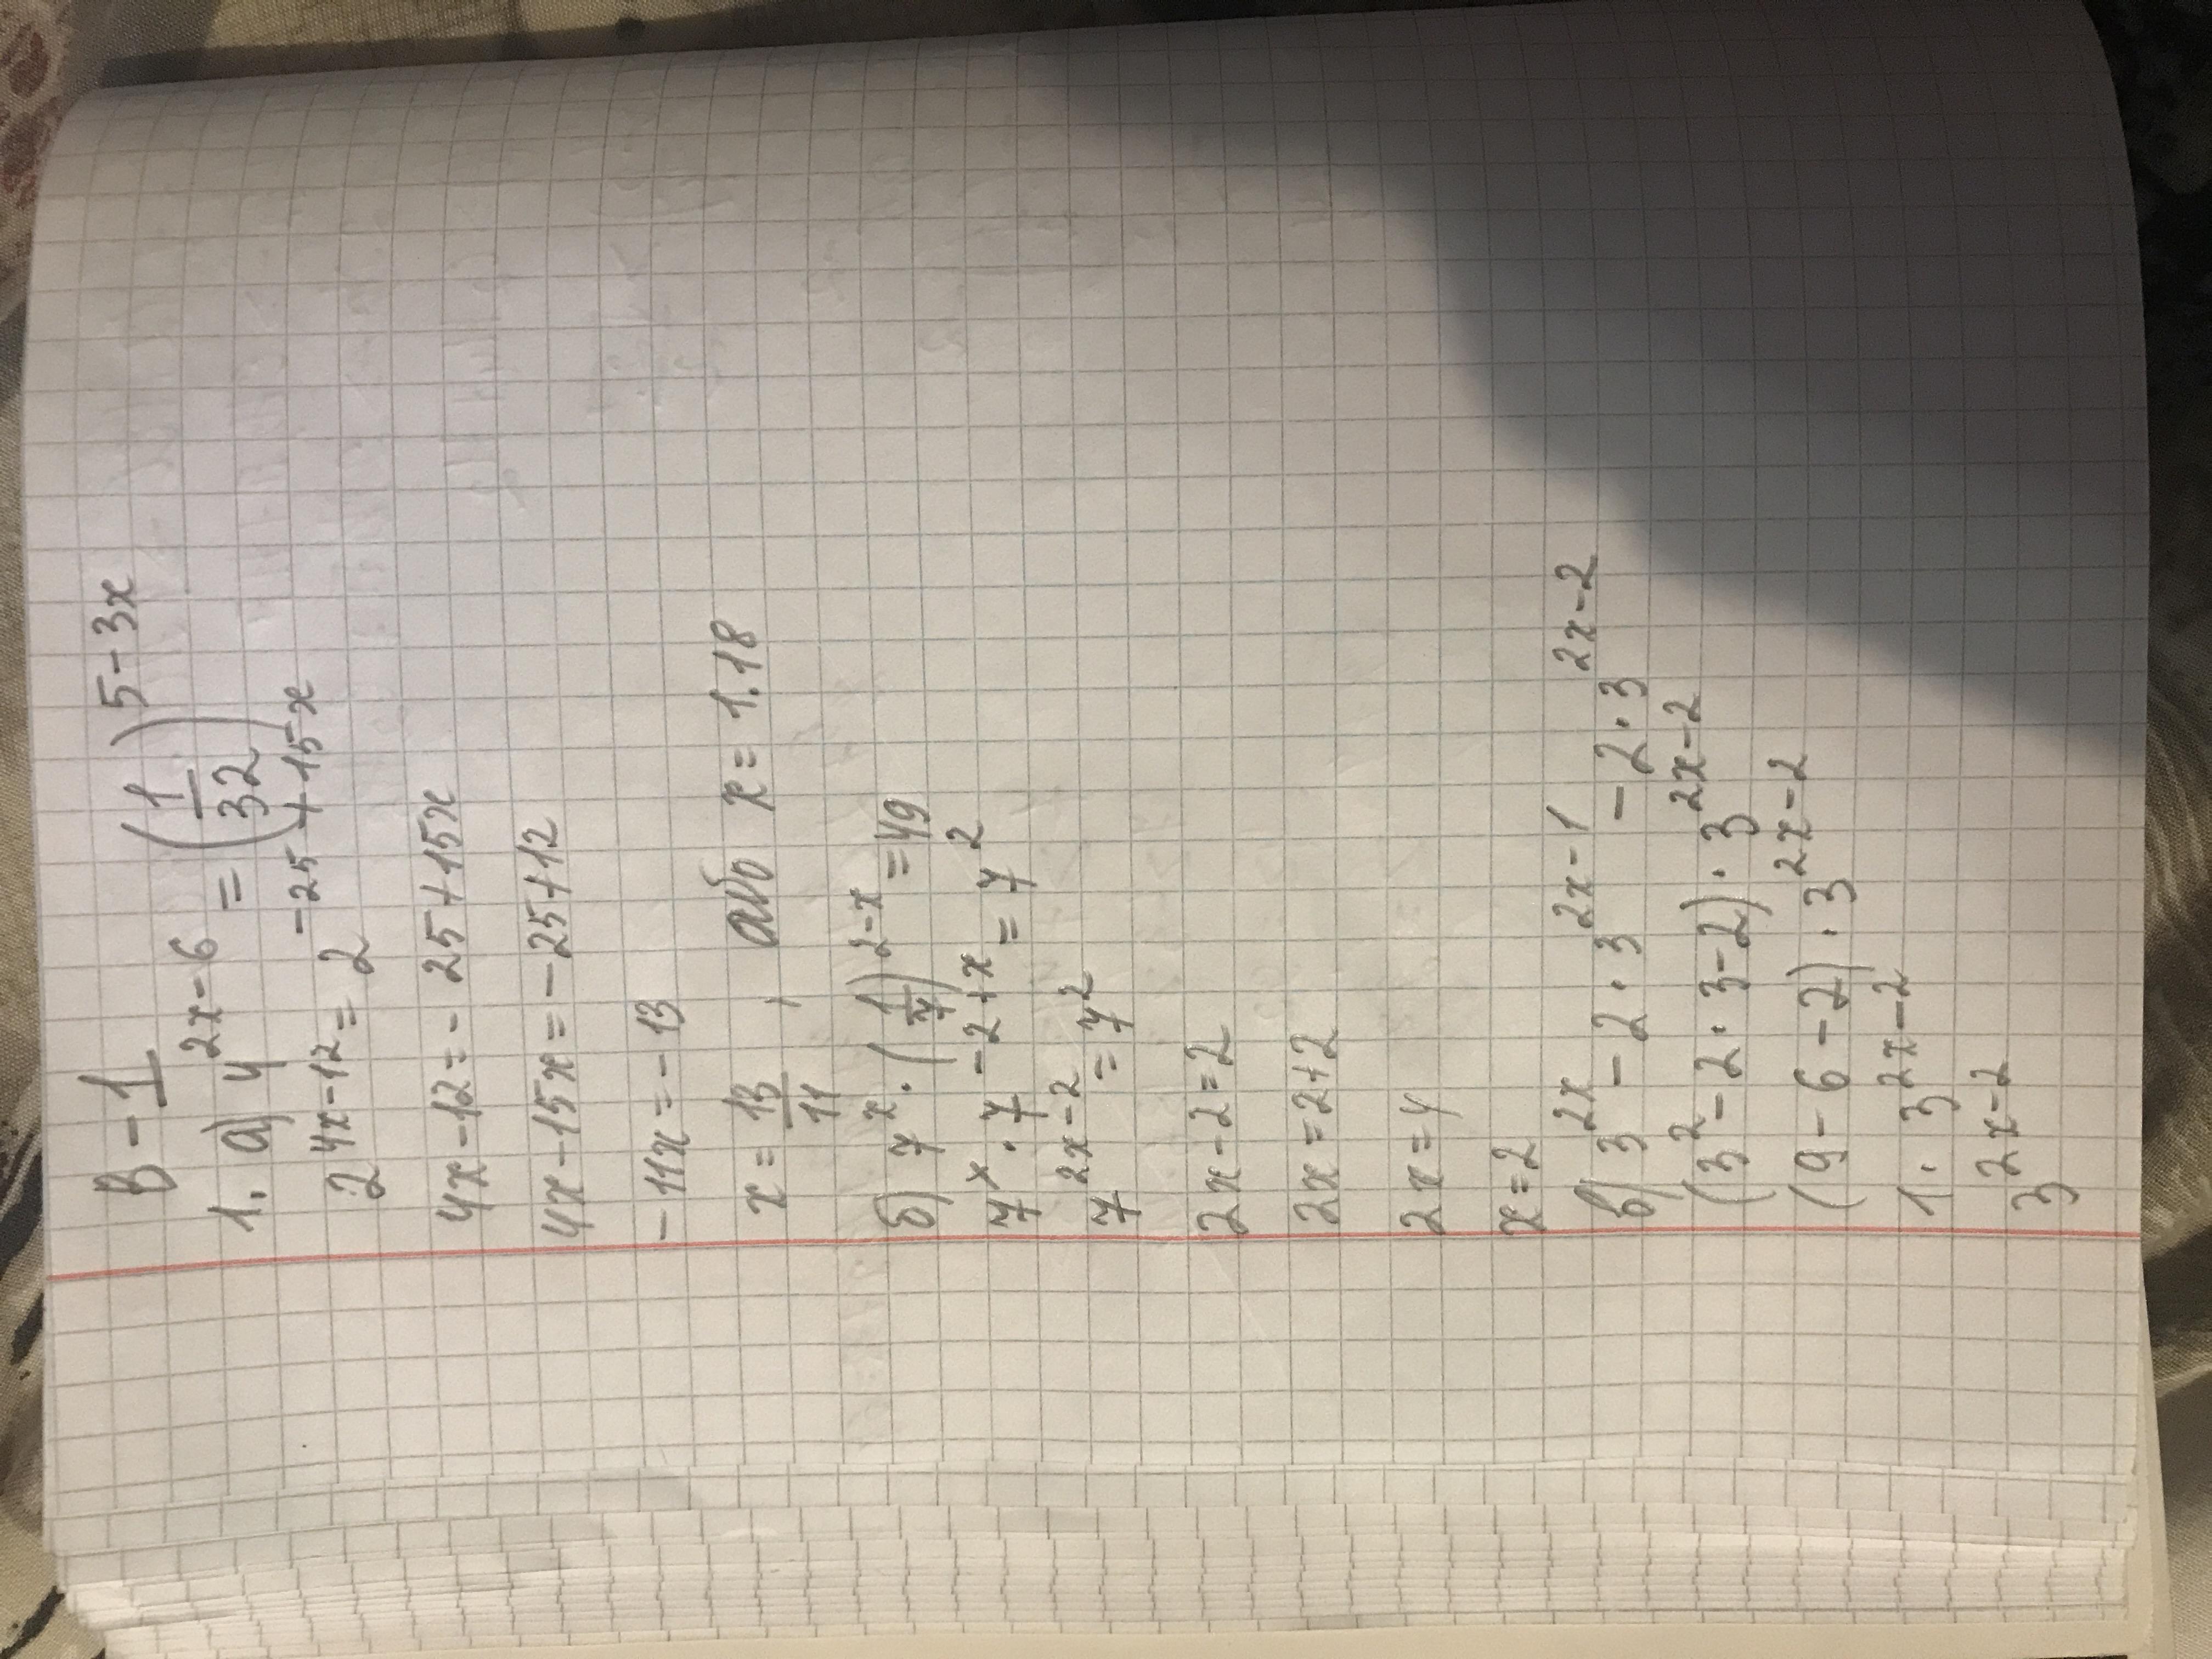 В-1
1. а) 4^{2x-6} = (1/32)^{5-3x}
2^{4x-12} = 2^{-25+15x}
4x-12=-25+15x
4x-15x=-25+12
-11x=-13
x = 13/11 , або x = 1.18
б) 7^x · (1/7)^{2-x} = 49
7^x · 7^{-2+x} = 7^2
7^{2x-2} = 7^2
2x-2=2
2x=2+2
2x=4
x=2
в) 3^{2x} - 2·3^{2x-1} - 2·3^{2x-2}
(3^2-2·3-2)·3^{2x-2}
(9-6-2)·3^{2x-2}
1·3^{2x-2}
3^{2x-2}